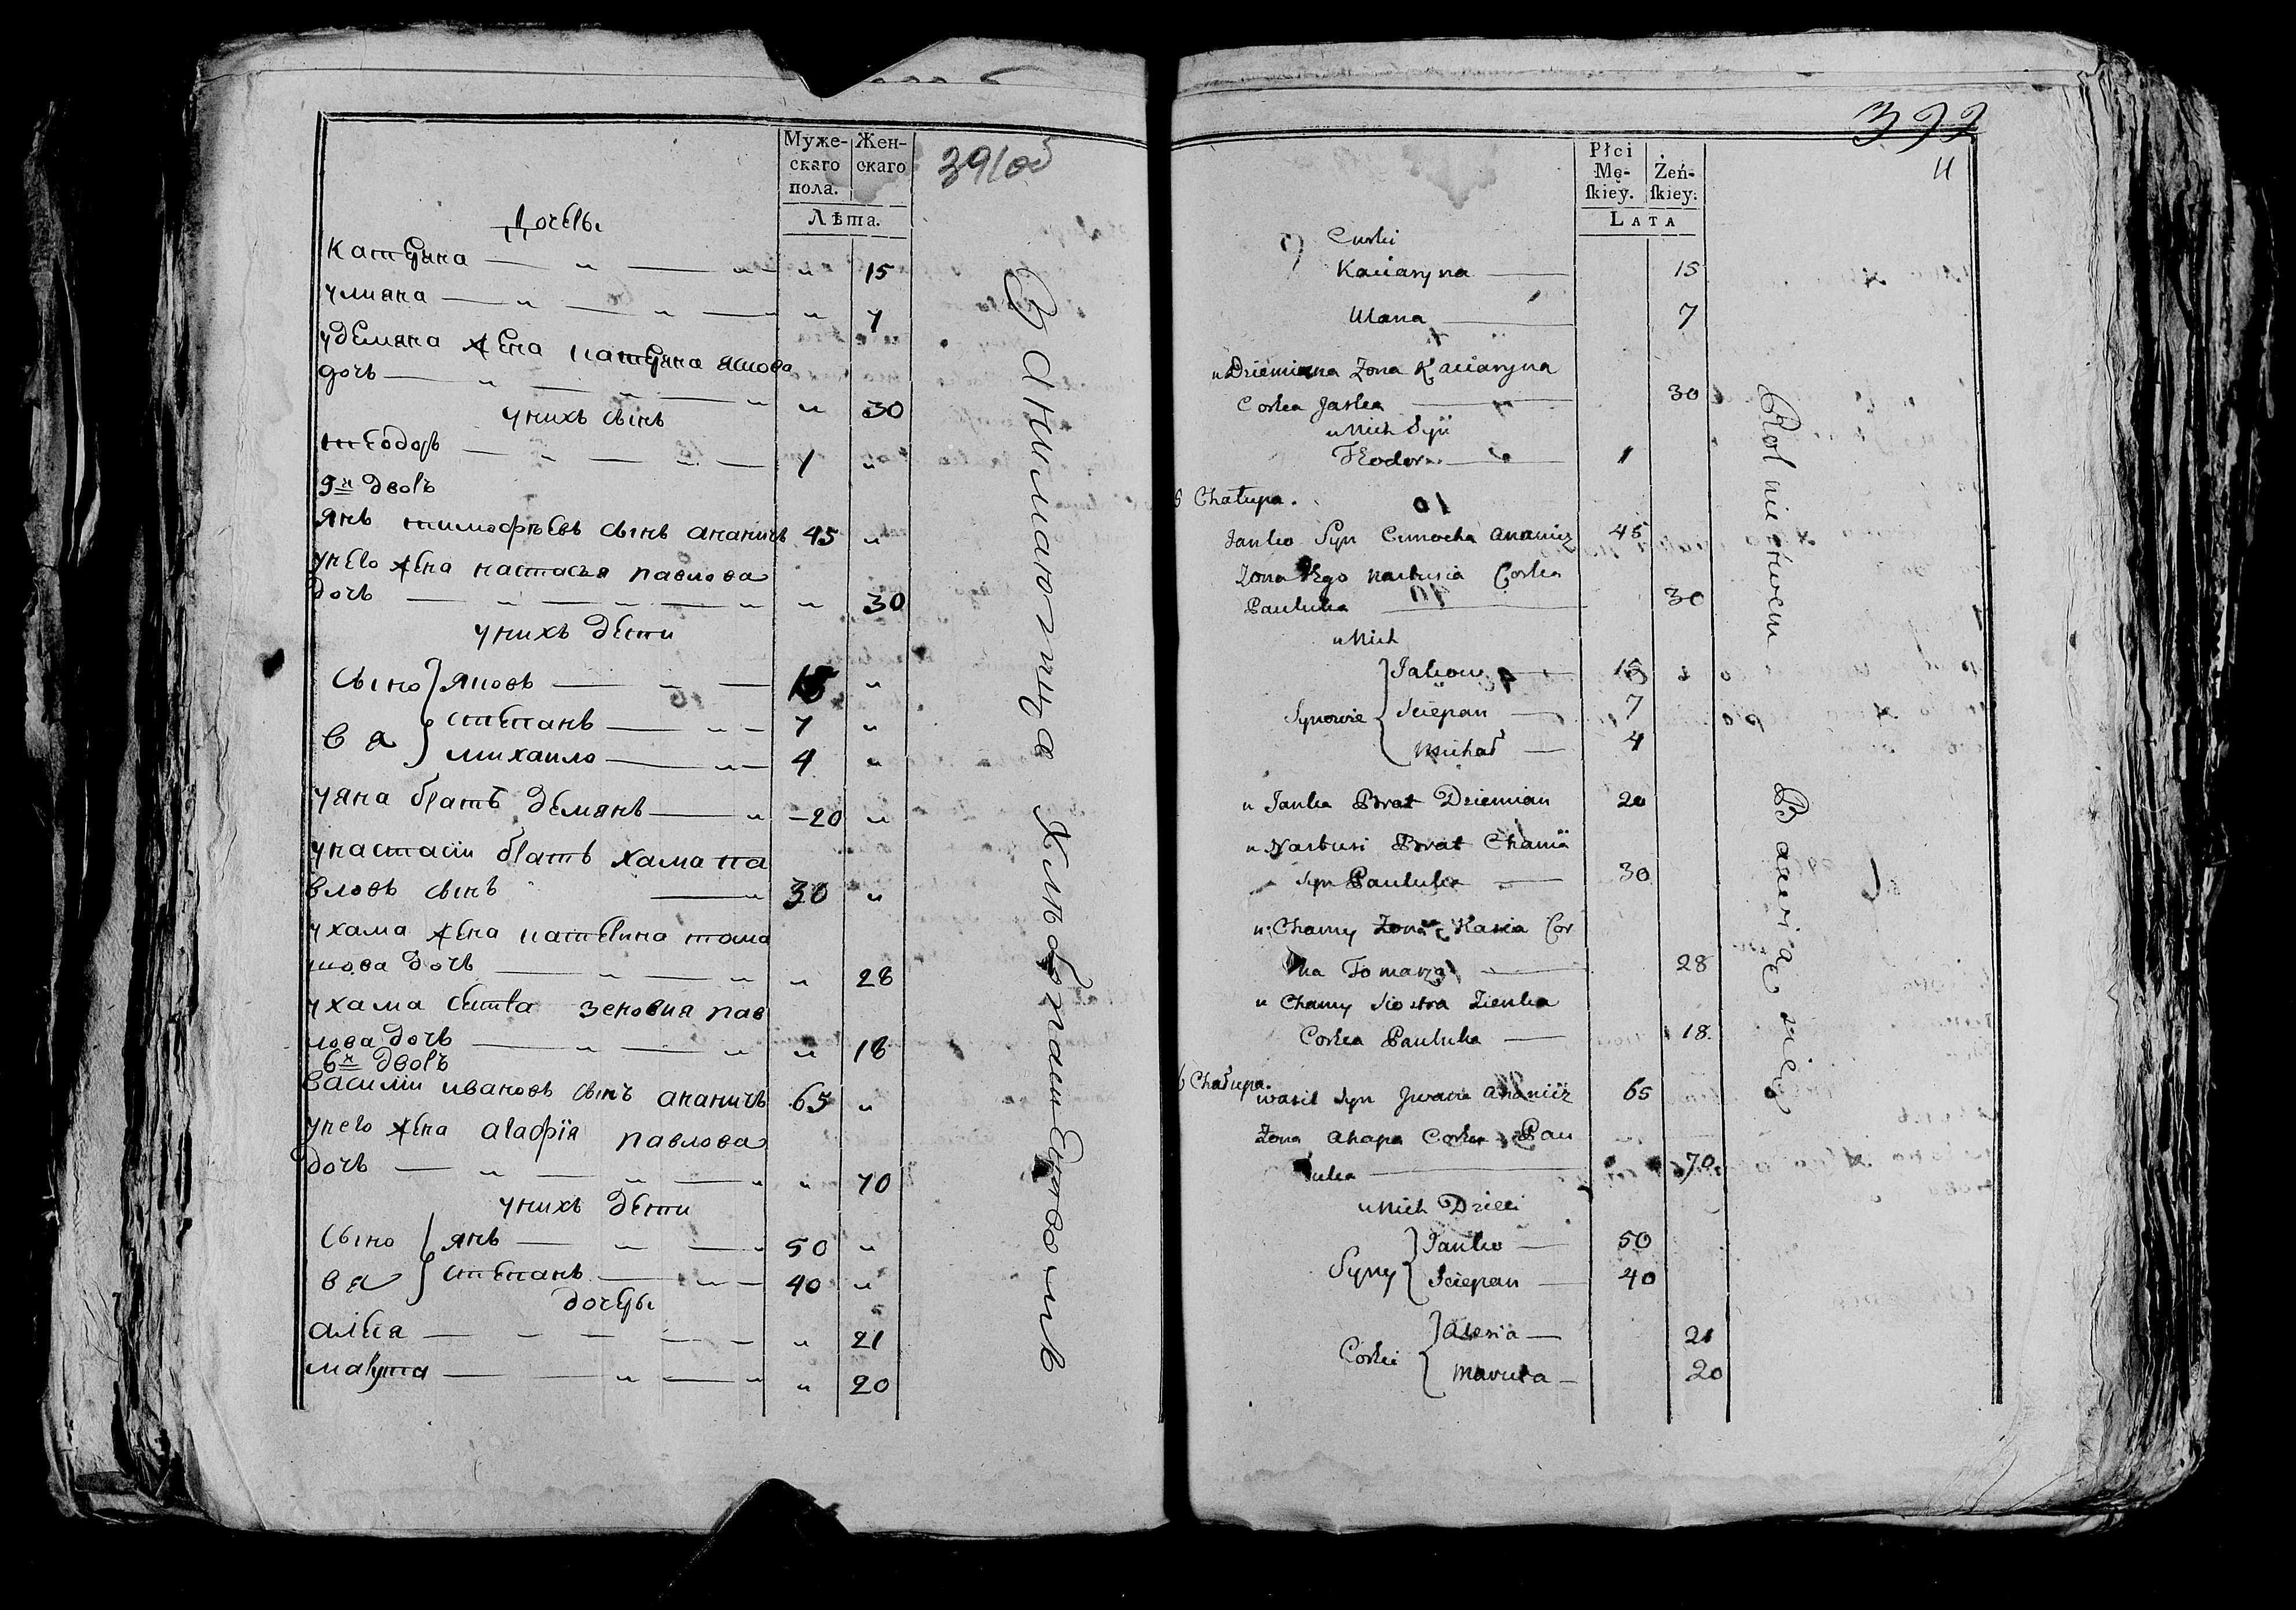 Муже-
скаго
пола.
Жен-
скаго
Лѣта.
391 об
дочеры
катерина — „ — „ „ 15
улиана — „ — „ — „ 7
удемяна жена катерина яшова
дочь — „ — „ — „ „ 30
унихъ сынъ
теодоръ — „ — „ — 1 „
5й дворъ
янъ тимофѣевъ сынъ ананичъ 45 „
унево жена настасья павлова
дочь — „ — „ — „ „ 30
унихъ дети
сыно яковъ — „ — 15 „
степанъ — „ — 7 „
вя михаило — „ — 4 „
уяна братъ демянъ — „ 20 „
унастасіи братъ хама па
вловъ сынъ — „ 30 „
ухама жена катерина тома
шова дочь — „ — „ „ 28
ухама сестра зеновия пав
лова дочь — „ — „ „ 18
6й дворъ
василіи ивановъ сынъ ананичъ 65 „
унево жена агафія павлова
дочь — „ — „ — „ „ 70
унихъ дети
сыно янъ — „ — „ 50 „
вя степанъ — „ — 40 „
дочеры
алеся — — — — „ 21
марута — — „ — „ „ 20
Занимаютца хлѣбопашествомъ
392
11
Płci
Mę-
skiey.
Żeń-
skiey.
LATA
Curki
Kaciaryna — 15
Ulana — 7
u Dziemiana Zona Kaciaryna
Corka Jaska — 30
u Nich Syn
Teodor — 1
5 Chałupa.
Janko Syn Cimocha Ananicz 45
Zona Jego Nastusia Corka
Pauluka — 30
u Nich
Jakow — 15
Synowie Sciepan — 7
Michał — 4
u Janka Brat Dziemian 20
u Nastusi Brat Chama
Syn Pauluka — 30
u Chamy Zona Kasia Cor
ka Tomasza — 28
u Chamy Siostra Zienka
Corka Pauluka — 18.
6 Chałupa.
Wasil Syn Jwana Ananicz 65
Zona Ahapa Corka Pau
luka — 70.
u Nich Dzieci
Janko — 50
Syny Sciepan — 40
Alesia — 21
Corki Maruta — 20
Rolnictwem Bawią się